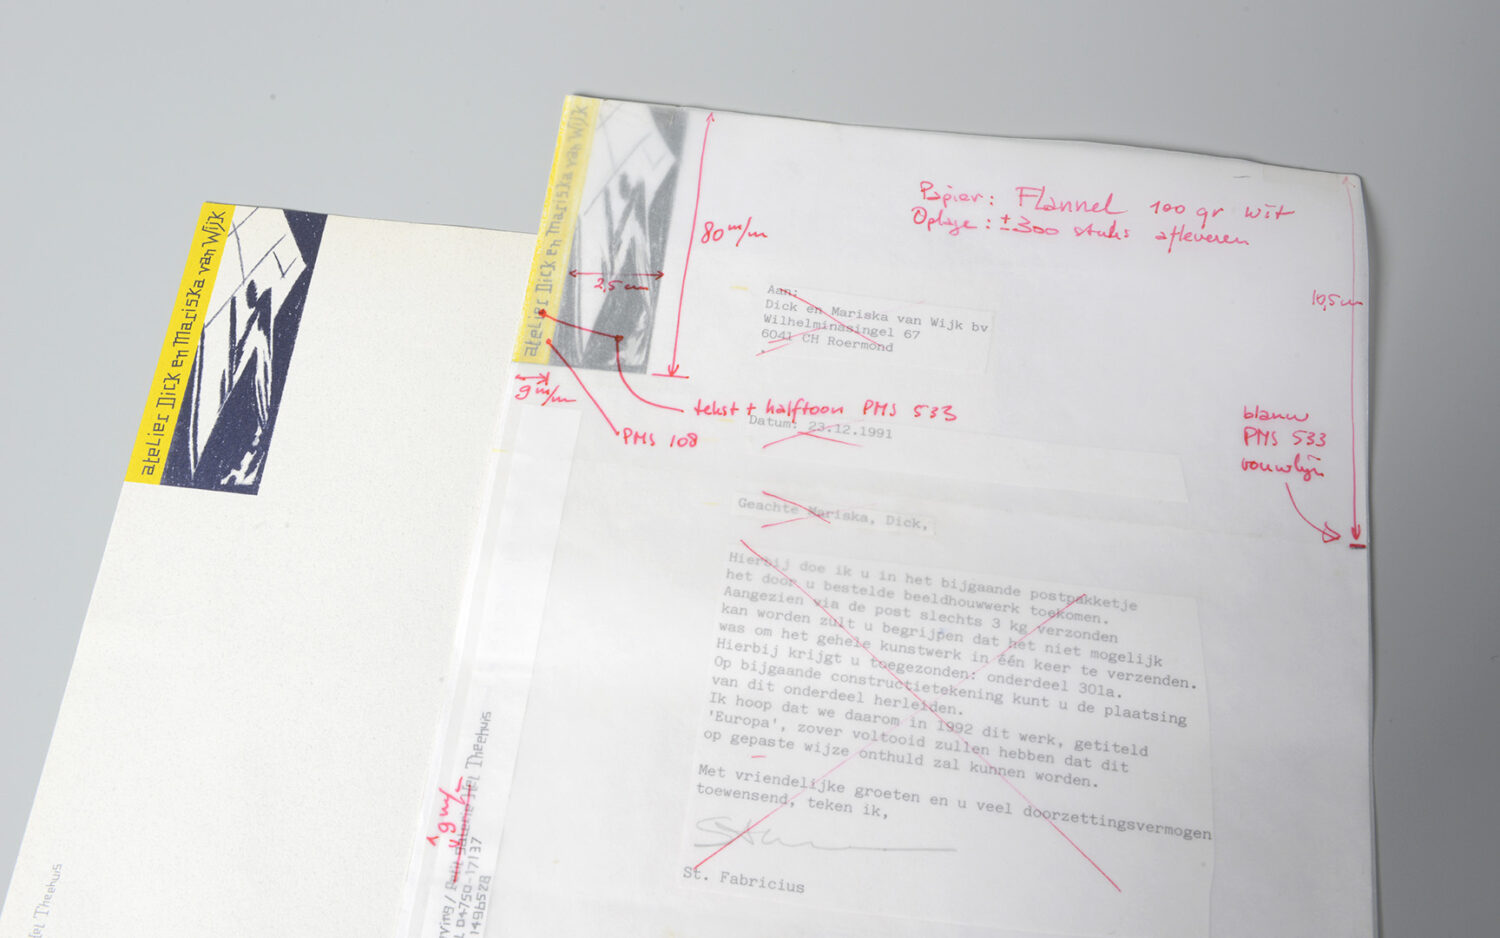 ateLier Dick en Mariska van Wijk
Het Theehuis
ateLier Dick en Mariska van Wijk
80 m/m
2,5 cm
9 m/m
Papier: Flannel 100 gr wit
Oplage: ±300 stuks afleveren
10,5 cm
Aan:
Dick en Mariska van Wijk bv
Wilhelminasingel 67
6041 CH Roermond
tekst + halftoon PMS 533
PMS 108
blauw
PMS 533
vouwlijn
Datum: 23.12.1991
Geachte Mariska, Dick,
Hierbij doe ik u in het bijgaande postpakketje
het door u bestelde beeldhouwwerk toekomen.
Aangezien via de post slechts 3 kg verzonden
kan worden zult u begrijpen dat het niet mogelijk
was om het gehele kunstwerk in één keer te verzenden.
Hierbij krijgt u toegezonden: onderdeel 301a.
Op bijgaande constructietekening kunt u de plaatsing
van dit onderdeel herleiden.
Ik hoop dat we daarom in 1992 dit werk, getiteld
'Europa', zover voltooid zullen hebben dat dit
op gepaste wijze onthuld zal kunnen worden.
Met vriendelijke groeten en u veel doorzettingsvermogen
toewensend, teken ik,
St. Fabricius
9 m/m
ving / Petit Galerie Het Theehuis
L 04750-17137
1496528